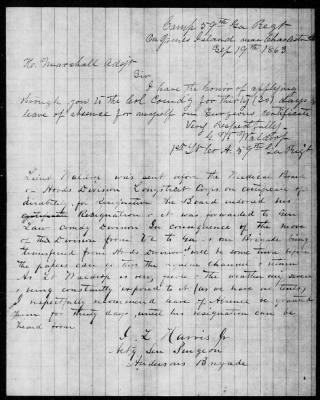 Camp 59th Ga Regt
On James Island near Charleston
Sep 19th 1863
Marshall Adjt
Sir
I have the honor of applying
through you to the Col Comdg for thirty (30) days
leave of absence for myself on Surgeons certificate
Very Respectfully
Waldrop
1st Lt Co A. 59th Ga Regt
Lieut Waldrop was sent before the Medical Board
of Hoods Division Longstreet Corps on certificate of
disability for resignation The Board endorsed his
Resignation & it was forwarded to Gen
Law comdg Division In consequence of the move
of this Division from Va to Ga & our Brigade being
transfered from Hoods Division will be some time before
the papers can the channel & return
As Lt Waldrop is the weather
& being constantly exposed to it (as we have no tents)
I respectfully recommend leave of absence be granted
him for thirty days, until his resignation can be
heard from
Harris Jr
Actg Sen Surgeon
Andersons Brigade